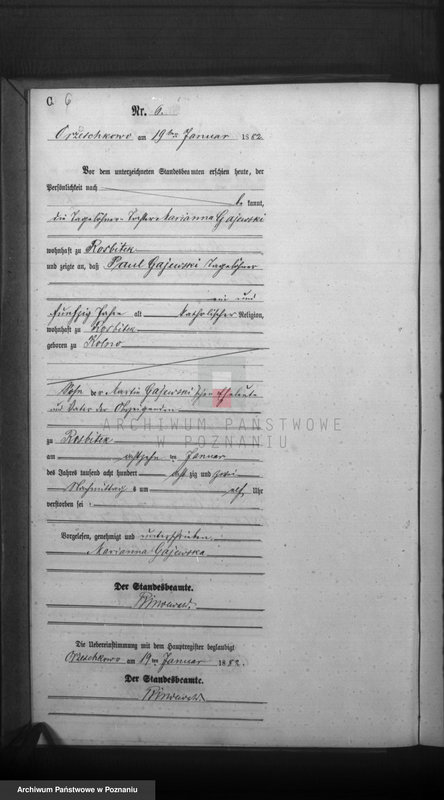 C. 6
Nr. 6.
Orzeschkowo am 19ten Januar 1882.
Vor dem unterzeichneten Standesbeamten erschien heute, der
Persönlichkeit nach
be kannt,
die Tagelöhner-Tochter Marianna Gajewski
wohnhaft zu Rosbitek
und zeigte an, daß Paul Gajewski, Tagelöhner
ein und
fünfzig Jahre alt katholischer Religion,
wohnhaft zu Rosbitek
geboren zu Kolno
Sohn der Martin Gajewski'schen Eheleute
und Vater der Obigen
ARCHIWUM PAŃSTWOWE
W POZNANIU
zu Rosbitek
am achtzehn ten Januar
des Jahres tausend acht hundert acht zig und zwei
Nachmittag s um elf Uhr
verstorben sei.
Vorgelesen, genehmigt und unterschrieben
Marianna Gajewska
Der Standesbeamte.
Die Uebereinstimmung mit dem Hauptregister beglaubigt
Orzeschkowo am 19ten Januar 1882.
Der Standesbeamte.
Archiwum Państwowe w Poznaniu